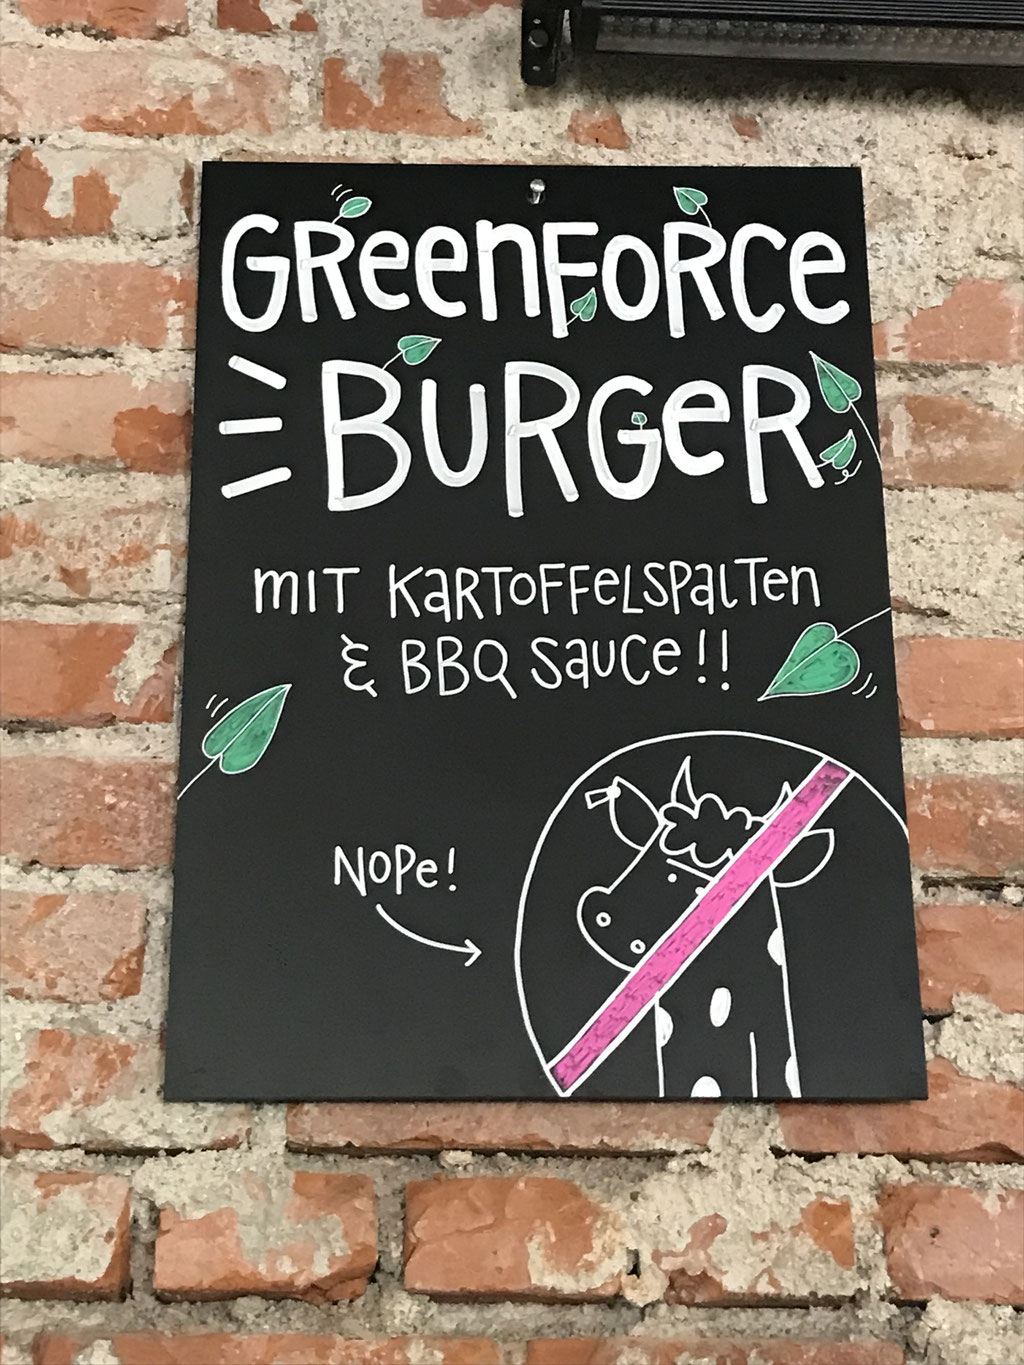 GReenFORCe
BURGeR
mIT KaRTOFFeLSPaLTen
& BBQ Sauce!!
NOPe!